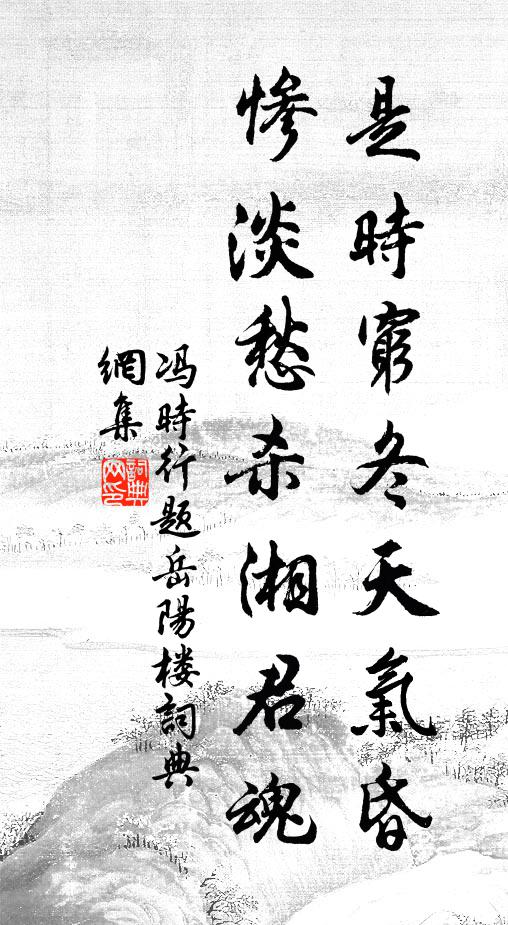 是時窮冬天氣昏
慘淡愁杀湘君魂
冯時行题岳陽楼詞典
網集
詞典网印